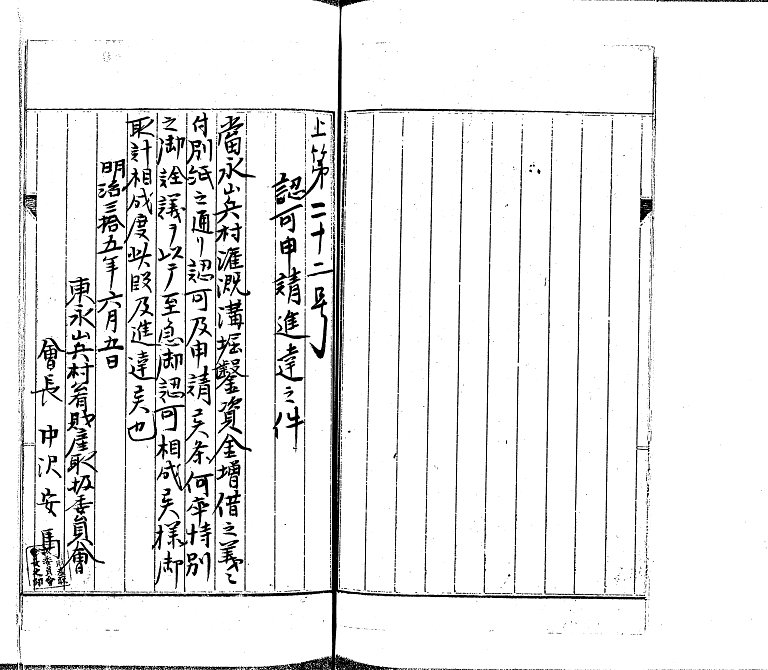 上第二十二号
認可申請進達之件
當永山兵村灌漑溝堀鑿資金増借之義ニ
付別紙之通リ認可及申請候条何卒特別
之御詮議ヲ以テ至急御認可相成候様御
取計相成度此段及進達候也
明治三拾五年六月五日
東永山兵村有財産取扱委員會
會長 中沢安馬